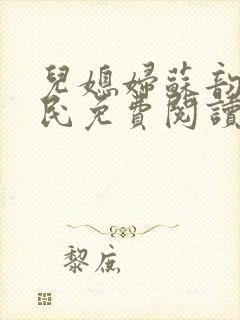 兒媳婦蘇韵
民免費閱讀
黎庶